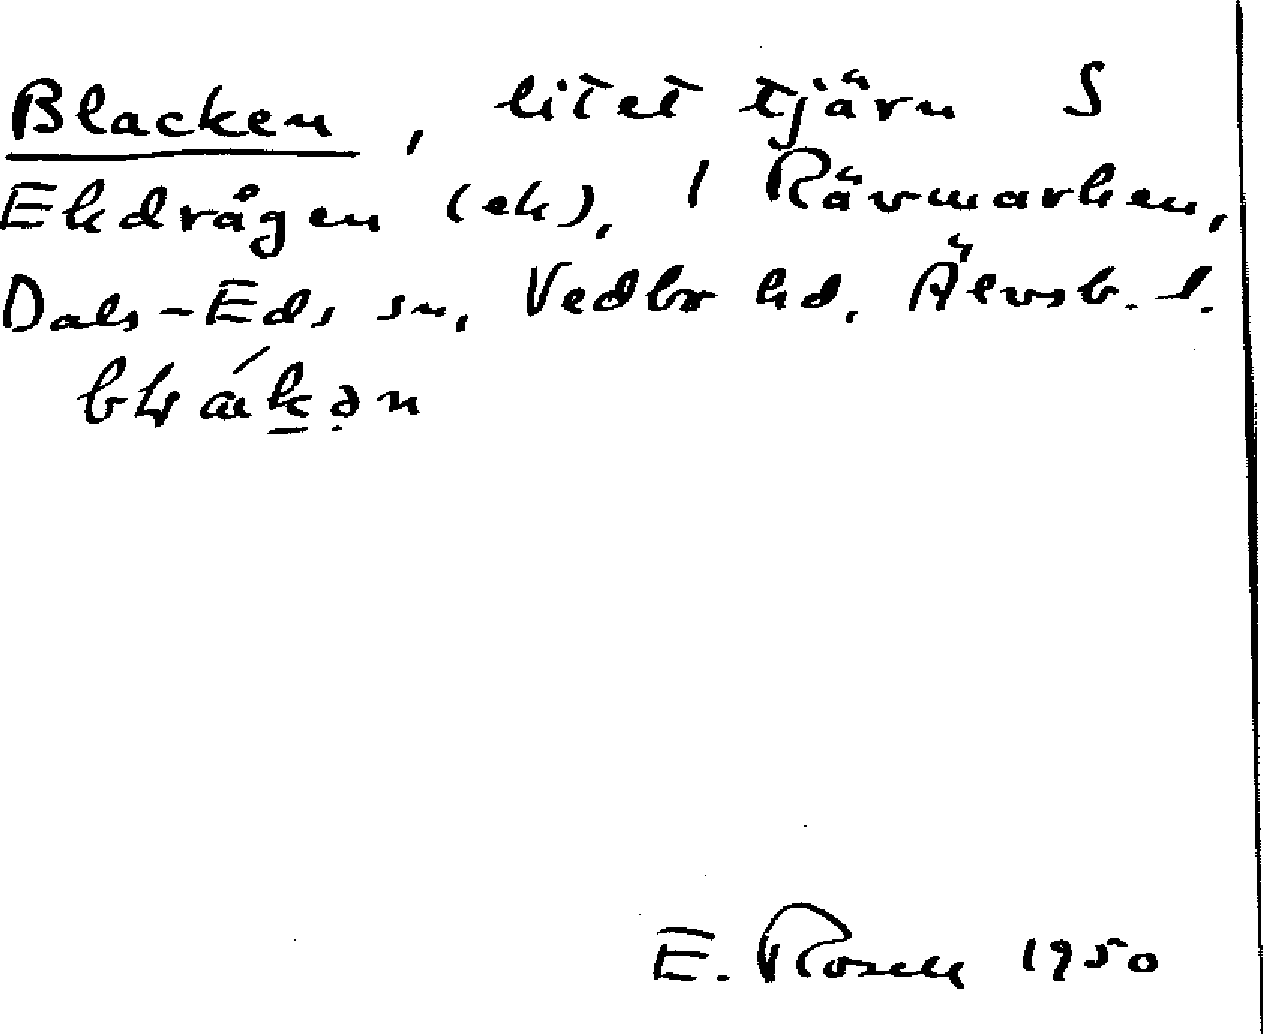 Blacken, litet tjärn S
Ekdrågen (ek), 1 Rävmarken,
Dals-Eds sn, Vedbo hd, Älvsb. l.
E. Rosell 1950